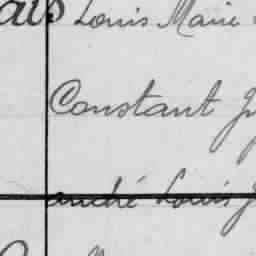 ais Louis Marie
Constant
André Louis